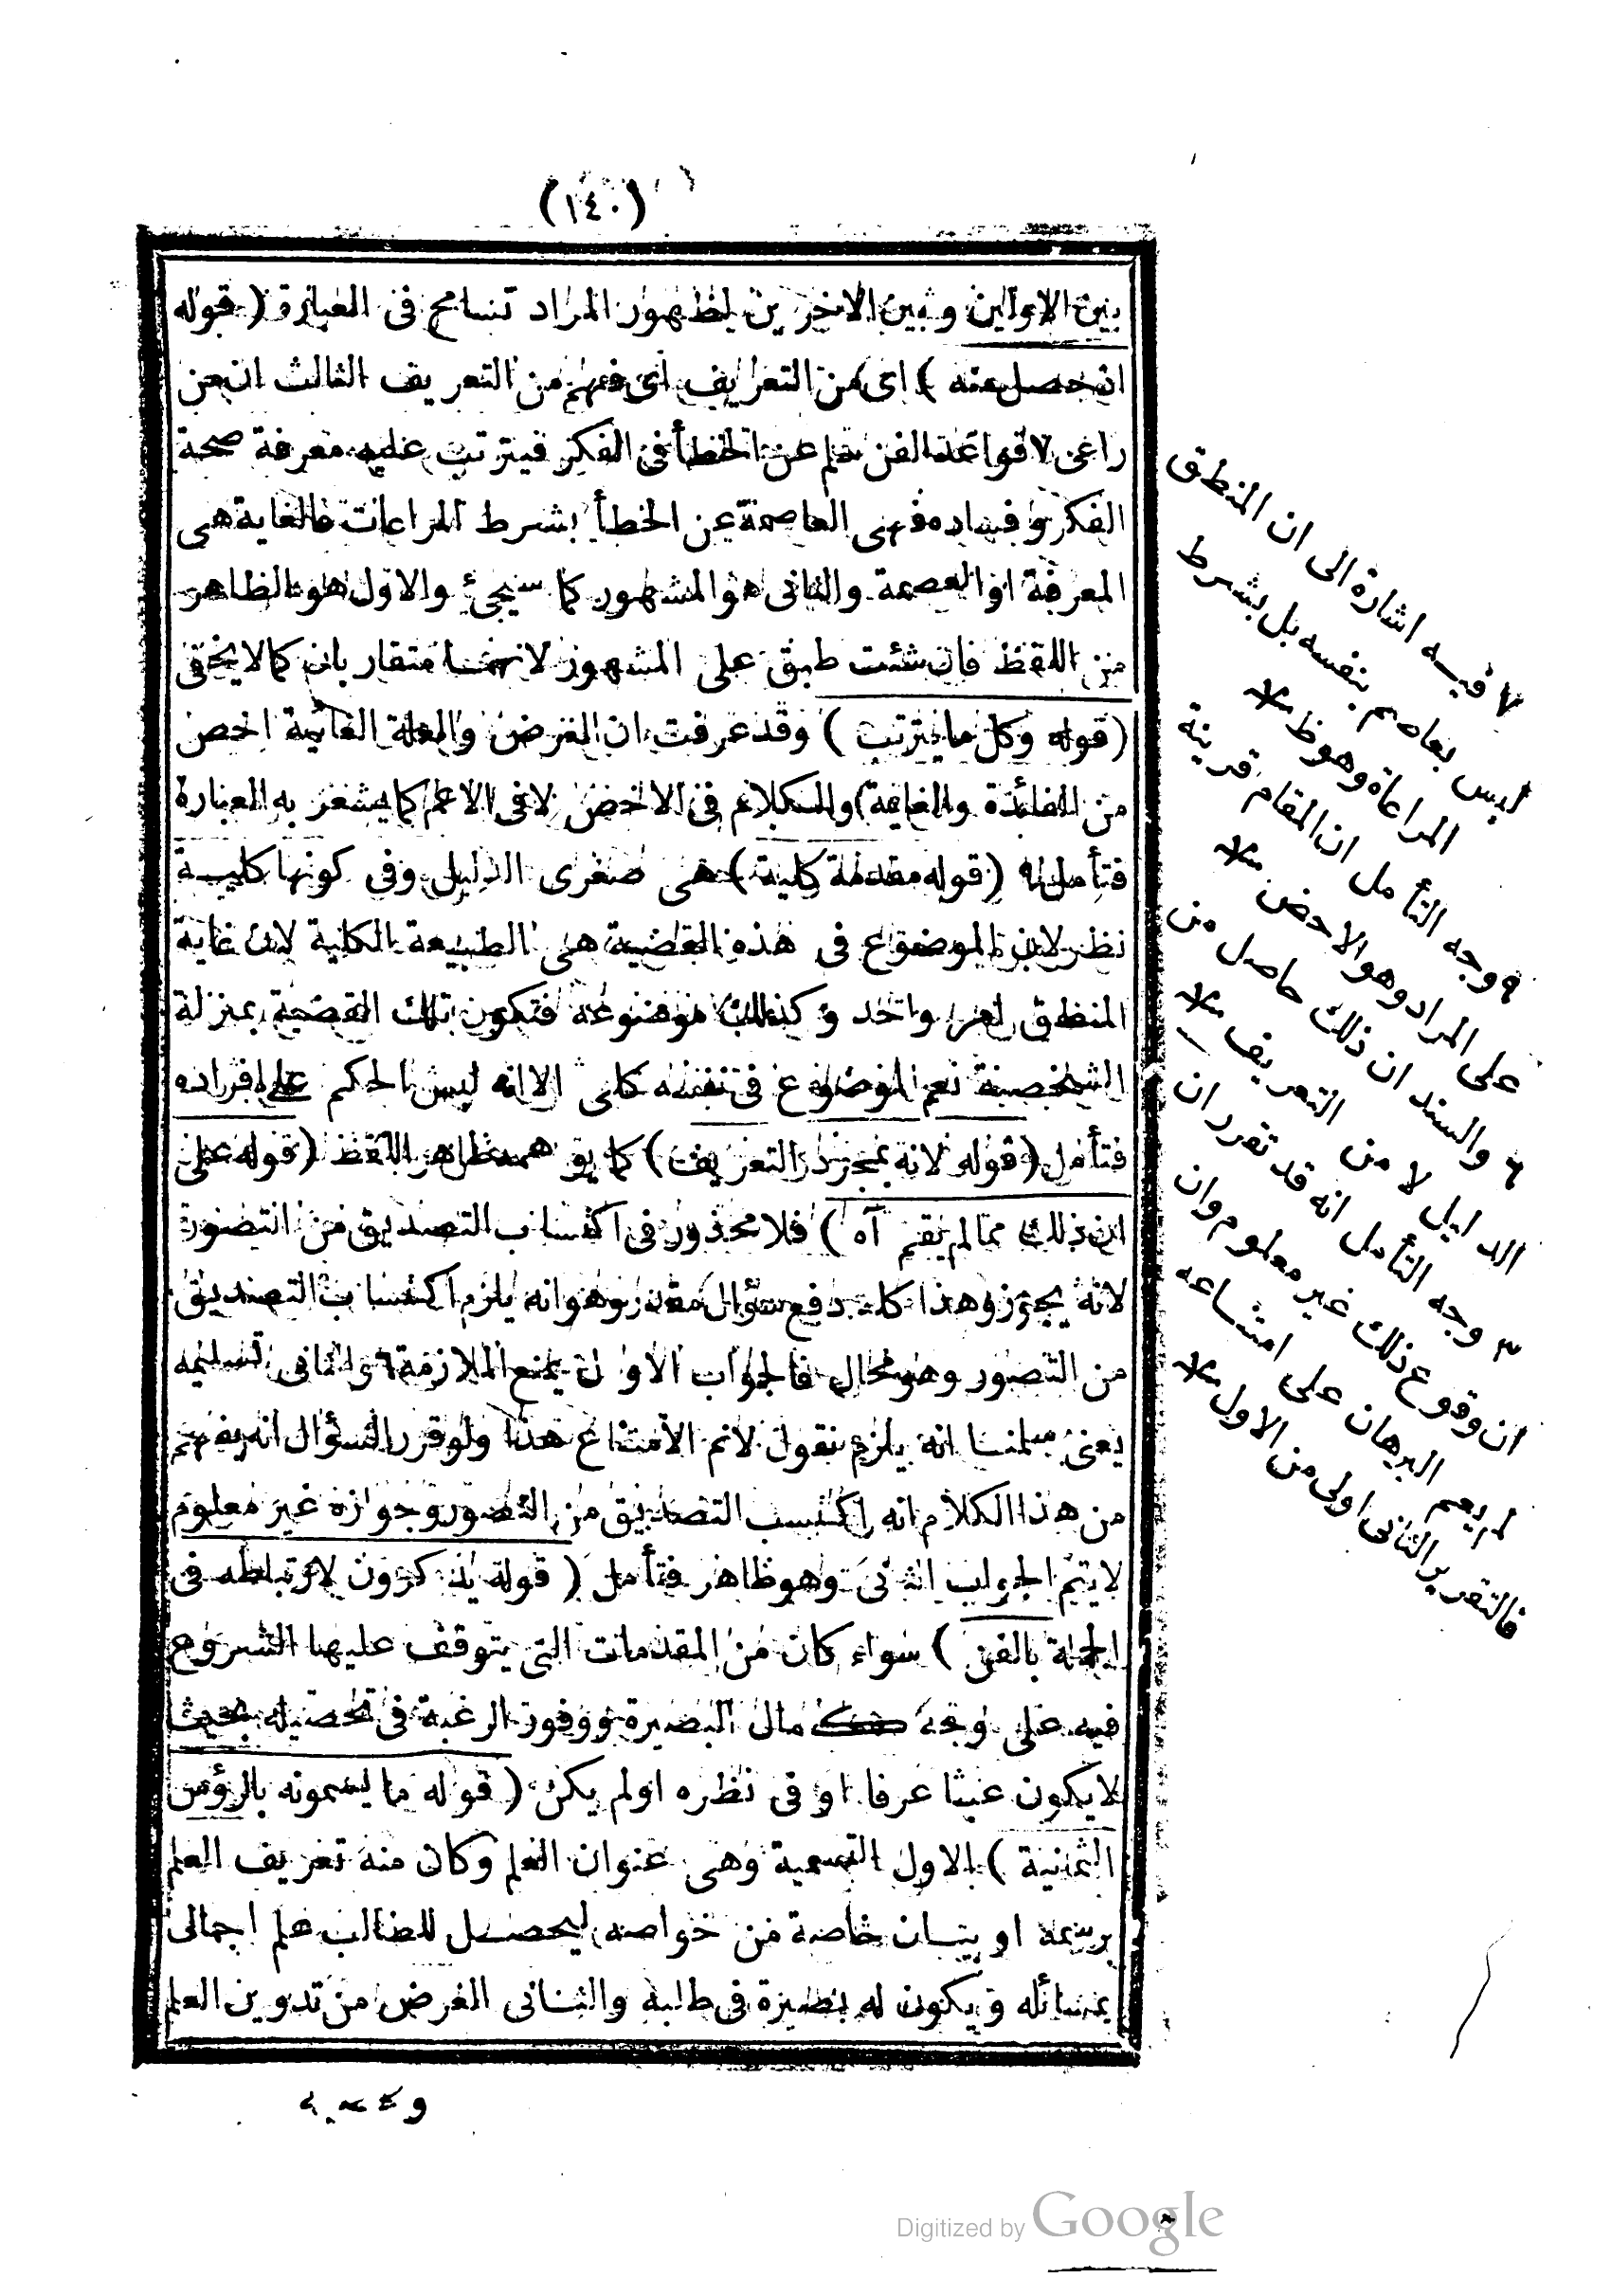 (١٤٠)
بين الاولين وبين الاخرين لظهور المراد تسامح فى العبارة ( قوله
ان حصل منه ) اى من التعريف اى فهم من التعريف الثالث ان من
راعى ٧ قواعد الفن علم عن الخطأ فى الفكر فيترتب عليه معرفة صحة
الفكر وفساده فهى العاصمة عن الخطأ بشرط المراعات فالغاية هى
المعرفة او العصمة والثانى هو المشهور كما سيجئ والاول هو الظاهر
من اللفظ فان شئت طبق على المشهور لانهما متقاربان كما لا يخفى
( قوله وكل ما يترتب ) وقد عرفت ان الغرض والعلة الغائية اخص
من الفائدة والغاية والكلام فى الاخص لا فى الاعم كما يشعر به العبارة
فتأمل ٩ ( قوله مقدمة كلية ) هى صغرى الدليل وفى كونها كلية
نظر لان الموضوع فى هذه القضية هى الطبيعة الكلية لان غاية
المنطق امر واحد وكذلك موضوعه فتكون تلك القضية بمنزلة
الشخصية نعم الموضوع فى نفسه كلى الا انه ليس الحكم على افراده
فتأمل ( قوله لانه بمجرد التعريف ) كما يوهمه ظاهر اللفظ ( قوله على
ان ذلك مما لم يقم آه ) فلا محذور فى اكتساب التصديق من التصور
لانه يجوز وهذا كله دفع سؤال مقدر وهو انه يلزم اكتساب التصديق
من التصور وهو محال فالجواب الاول يمنع الملازمة ٦ والثانى تسليمه
يعنى سلمنا انه يلزم نقول لانم الامتناع هذا ولو قرر السؤال انه يفهم
من هذا الكلام انه اكتسب التصديق من التصور وجوازه غير معلوم
لا يتم الجواب الثانى وهو ظاهر فتأمل ( قوله يذكرون لارتباطه فى
الجملة بالفن ) سواء كان من المقدمات التى يتوقف عليها الشروع
فيه على وجه كمال البصيرة ووفور الرغبة فى تحصيله بحيث
لا يكون عبثا عرفا او فى نظره او لم يكن ( قوله ما يسمونه بالرؤس
الثمنية ) الاول التسمية وهى عنوان العلم وكان منه تعريف العلم
برسمه او بيان خاصة من خواصه ليحصل للطالب علم اجمالى
بمسائله ويكون له بصيرة فى طلبه والثانى الغرض من تدوين العلم
٧ فيه اشارة الى ان المنطق
ليس بعاصم بنفسه بل بشرط
المراعاة وهو ظ منه
٩ وجه التأمل ان المقام قرينة
على المراد وهو الاخص منه
٦ والسند ان ذلك حاصل من
الدليل لا من التعريف منه
٣ وجه التأمل انه قد تقرر ان
ان وقوع ذلك غير معلوم وان
لم يعم البرهان على امتناعه
فالتقرير الثانى اولى من الاول منه
Digitized by Google